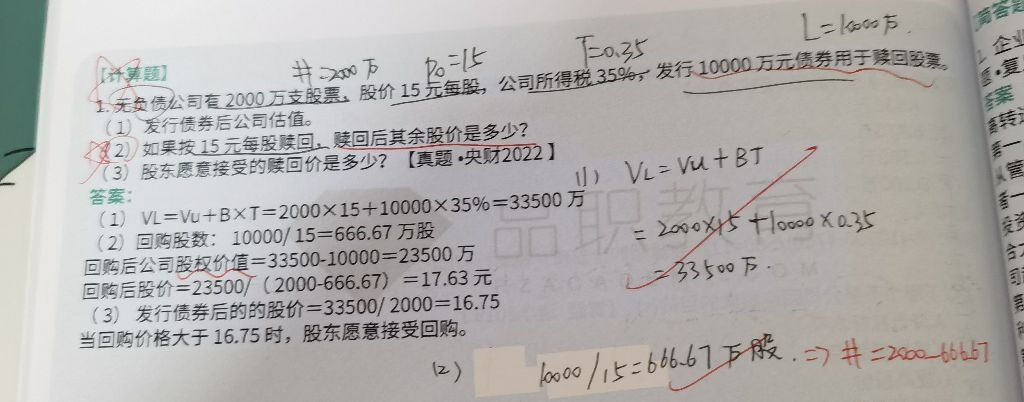 L=10000万
#=2000万 P0=15 T=0.35
【计算题】
1.无负债公司有2000万支股票，股价15元每股，公司所得税35%，发行10000万元债券用于赎回股票。
（1）发行债券后公司估值。
（2）如果按15元每股赎回，赎回后其余股价是多少？
（3）股东愿意接受的赎回价是多少？【真题·央财2022】
答案：
（1）VL=Vu+B×T=2000×15+10000×35%=33500万
（2）回购股数：10000/15=666.67万股
回购后公司股权价值=33500-10000=23500万
回购后股价=23500/（2000-666.67）=17.63元
（3）发行债券后的的股价=33500/2000=16.75
当回购价格大于16.75时，股东愿意接受回购。
(1) VL=Vu+BT
=2000×15+10000×0.35
=33500万.
(2) 10000/15=666.67万股. => #=2000-666.67
品职教育
简答题
1. 企业
题·复
答案
第一